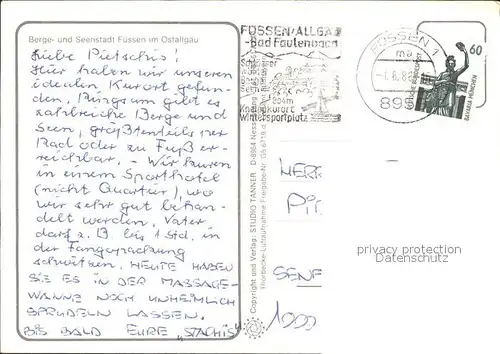 Berge- und Seenstadt Füssen im Ostallgäu
Liebe Pietschis!
Hier haben wir unseren
idealen Kurort gefun-
den. Ringsum gibt es
zahlreiche Berge und
Seen, größtenteils per
Rad oder zu Fuß er-
reichbar. - Wir kuren
in einem Sporthotel
(nicht Quartier), wo
wir sehr gut behan-
delt werden. Vater
darf z. B. bis 1 Std. in
der Fangopackung
schwitzen. HEUTE HABEN
SIE ES IN DER MASSAGE-
WANNE NOCH UNHEIMLICH
SPRUDELN LASSEN.
BIS BALD EURE "STACHIS"
FÜSSEN-ALLGÄ
-Bad Faulenbach
Kneippkurort
Wintersportplatz
FÜSSEN 1
ma
895
60
BAVARIA MÜNCHEN
Copyright und Verlag: STUDIO TANNER · D-8964 Nesse
Thorbecke-Luftaufnahme Freigabe-Nr. GS 6718 d
HERR
SENF
1000
privacy protection
Datenschutz